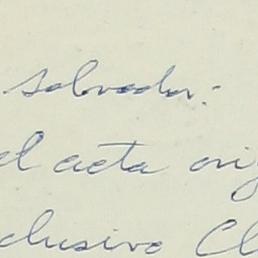 Salvador:
el acta orig
clusivo Cl